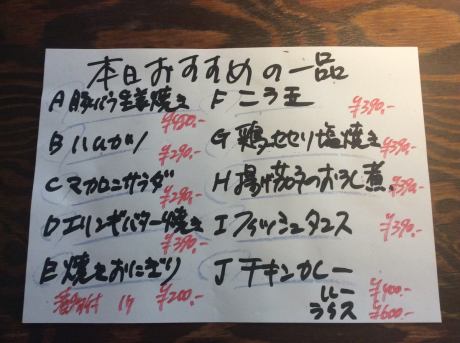 本日おすすめの一品
A 豚バラ生姜焼き ¥450.-
B ハムカツ ¥290.-
C マカロニサラダ ¥290.-
D エリンギバター焼き ¥390.-
E 焼きおにぎり
1ケ ¥200.-
F ニラ玉 ¥390.-
G 鶏セセリ塩焼き ¥390.-
H 揚げ茄子のおろし煮 ¥390.-
I フィッシュタコス ¥390.-
J チキンカレー
ルー ¥400.-
ライス ¥600.-